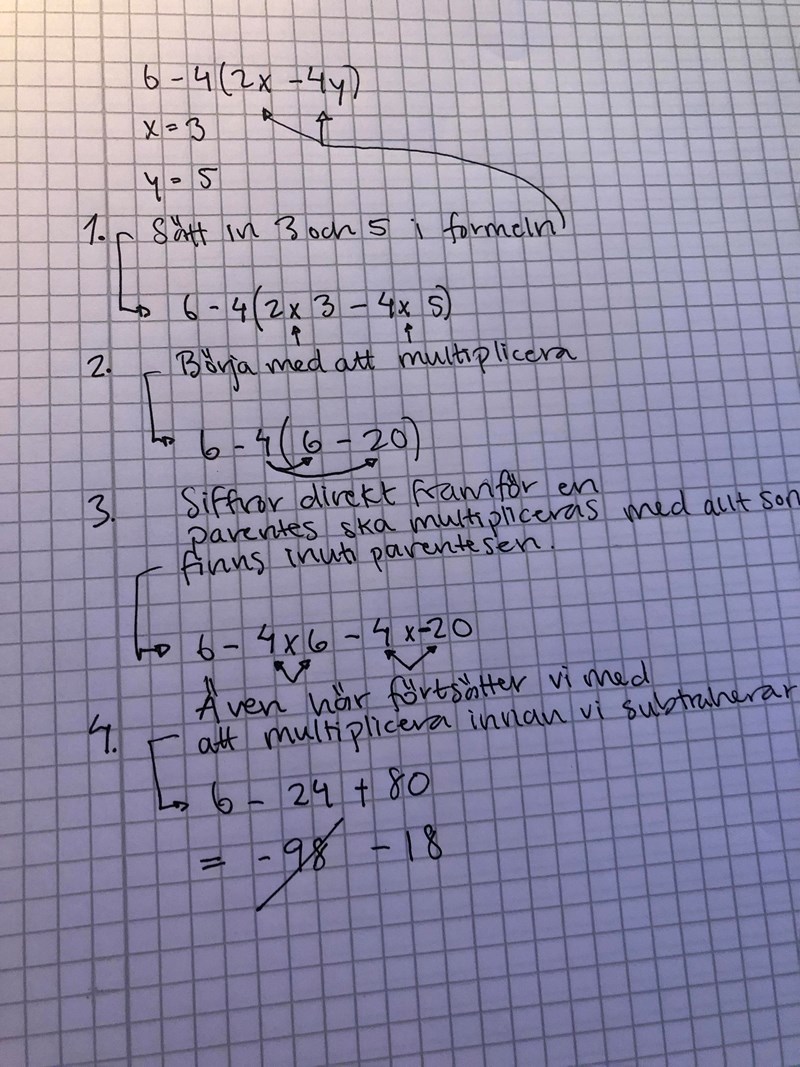 6 - 4(2x - 4y)
x = 3
y = 5
1. Sätt in 3 och 5 i formeln
6 - 4(2x 3 - 4x 5)
2. Börja med att multiplicera
6 - 4(6 - 20)
3. Siffror direkt framför en
parentes ska multipliceras med allt som
finns inuti parentesen.
6 - 4x6 - 4x-20
Även här förtsätter vi med
4. att multiplicera innan vi subtraherar
6 - 24 + 80
= -98 -18